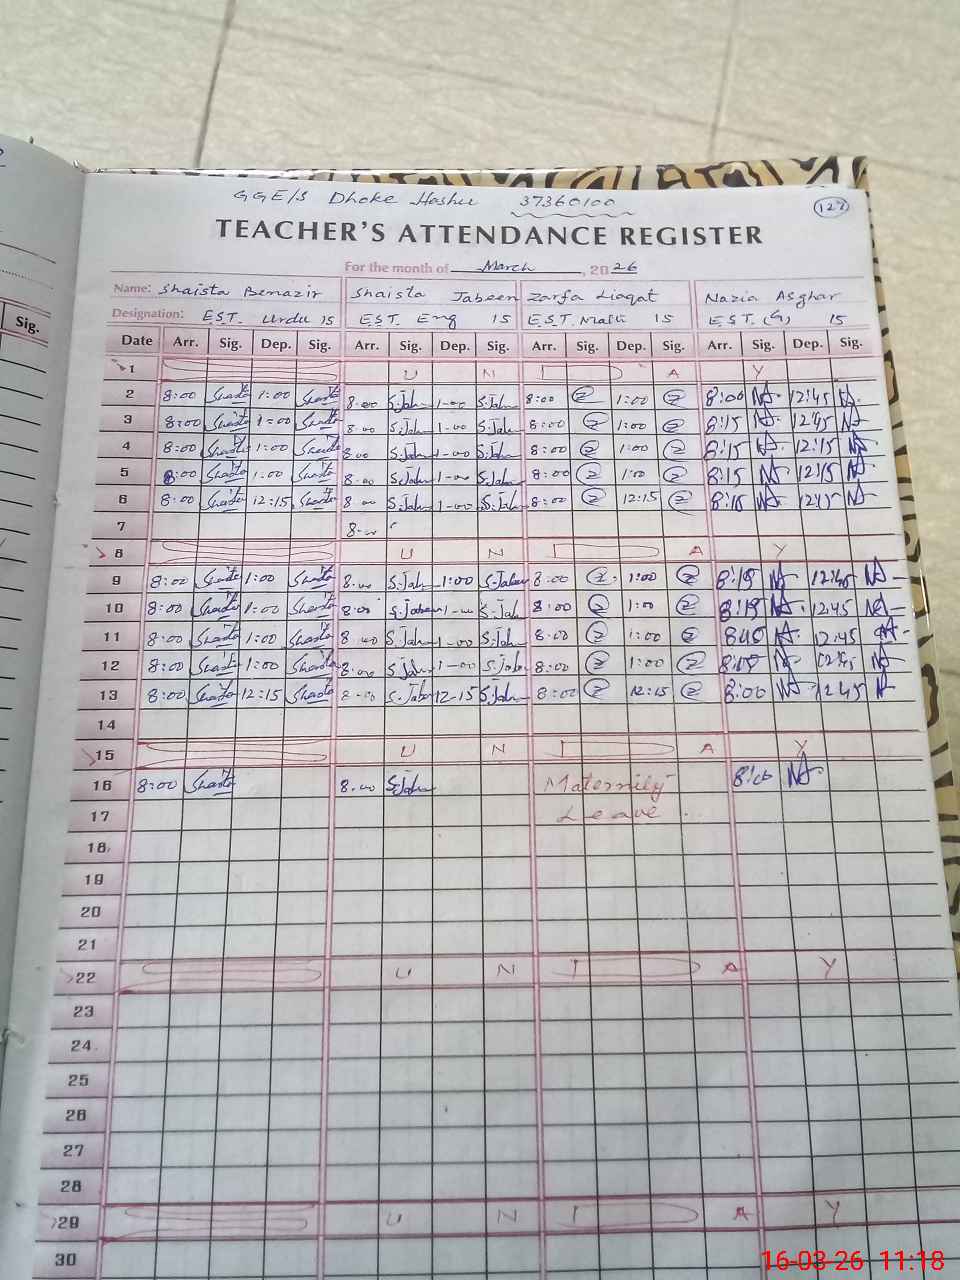 GGE/S Dhoke Hashu 37360100
127
TEACHER'S ATTENDANCE REGISTER
For the month of March, 2026
Name: Shaista Benazir Shaista Jabeen Zarfa Liaqat Nazia Asghar
Designation: EST. Urdu 15 EST. Eng 15 EST. Math 15 EST. (G) 15
Sig.
Date Arr. Sig. Dep. Sig. Arr. Sig. Dep. Sig. Arr. Sig. Dep. Sig. Arr. Sig. Dep. Sig.
1 U N D A Y
2 8:00 Shaista 1:00 Shaista 8-00 S.Jabn 1-00 S.Jabn 8:00 1:00 8:00 NA 12:45 NA
3 8:00 Shaista 1:00 Shaista 8-00 S.Jabn 1-00 S.Jabn 8:00 1:00 8:15 NA 12:45 NA
4 8:00 Shaista 1:00 Shaista 8-00 S.Jabn 1-00 S.Jabn 8:00 1:00 8:15 NA 12:15 NA
5 8:00 Shaista 1:00 Shaista 8-00 S.Jabn 1-00 S.Jabn 8:00 1:00 8:15 NA 12:15 NA
6 8:00 Shaista 12:15 Shaista 8-00 S.Jabn 1-00 S.Jabn 8:00 12:15 8:15 NA 12:15 NA
7 8-00
8 U N D A Y
9 8:00 Shaista 1:00 Shaista 8-00 S.Jabn 1:00 S.Jabeen 8:00 1:00 8:15 NA 12:45 NA
10 8:00 Shaista 1:00 Shaista 8:00 S.Jabeen 1-00 S.Jab 8:00 1:00 8:15 NA 12:45 NA
11 8:00 Shaista 1:00 Shaista 8-00 S.Jabn 1-00 S.Jabn 8:00 1:00 8:15 NA 12:45 NA
12 8:00 Shaista 1:00 Shaista 8-00 S.Jabn 1-00 S.Jabn 8:00 1:00 8:15 NA 12:45 NA
13 8:00 Shaista 12:15 Shaista 8-00 S.Jabn 12-15 S.Jabn 8:00 12:15 8:00 NA 12:45 NA
14
15 U N D A Y
16 8:00 Shaista 8-00 S.Jabn Maternity 8:00 NA
17 Leave
18
19
20
21
22 U N D A Y
23
24
25
26
27
28
29 U N D A Y
30
16-03-26 11:18